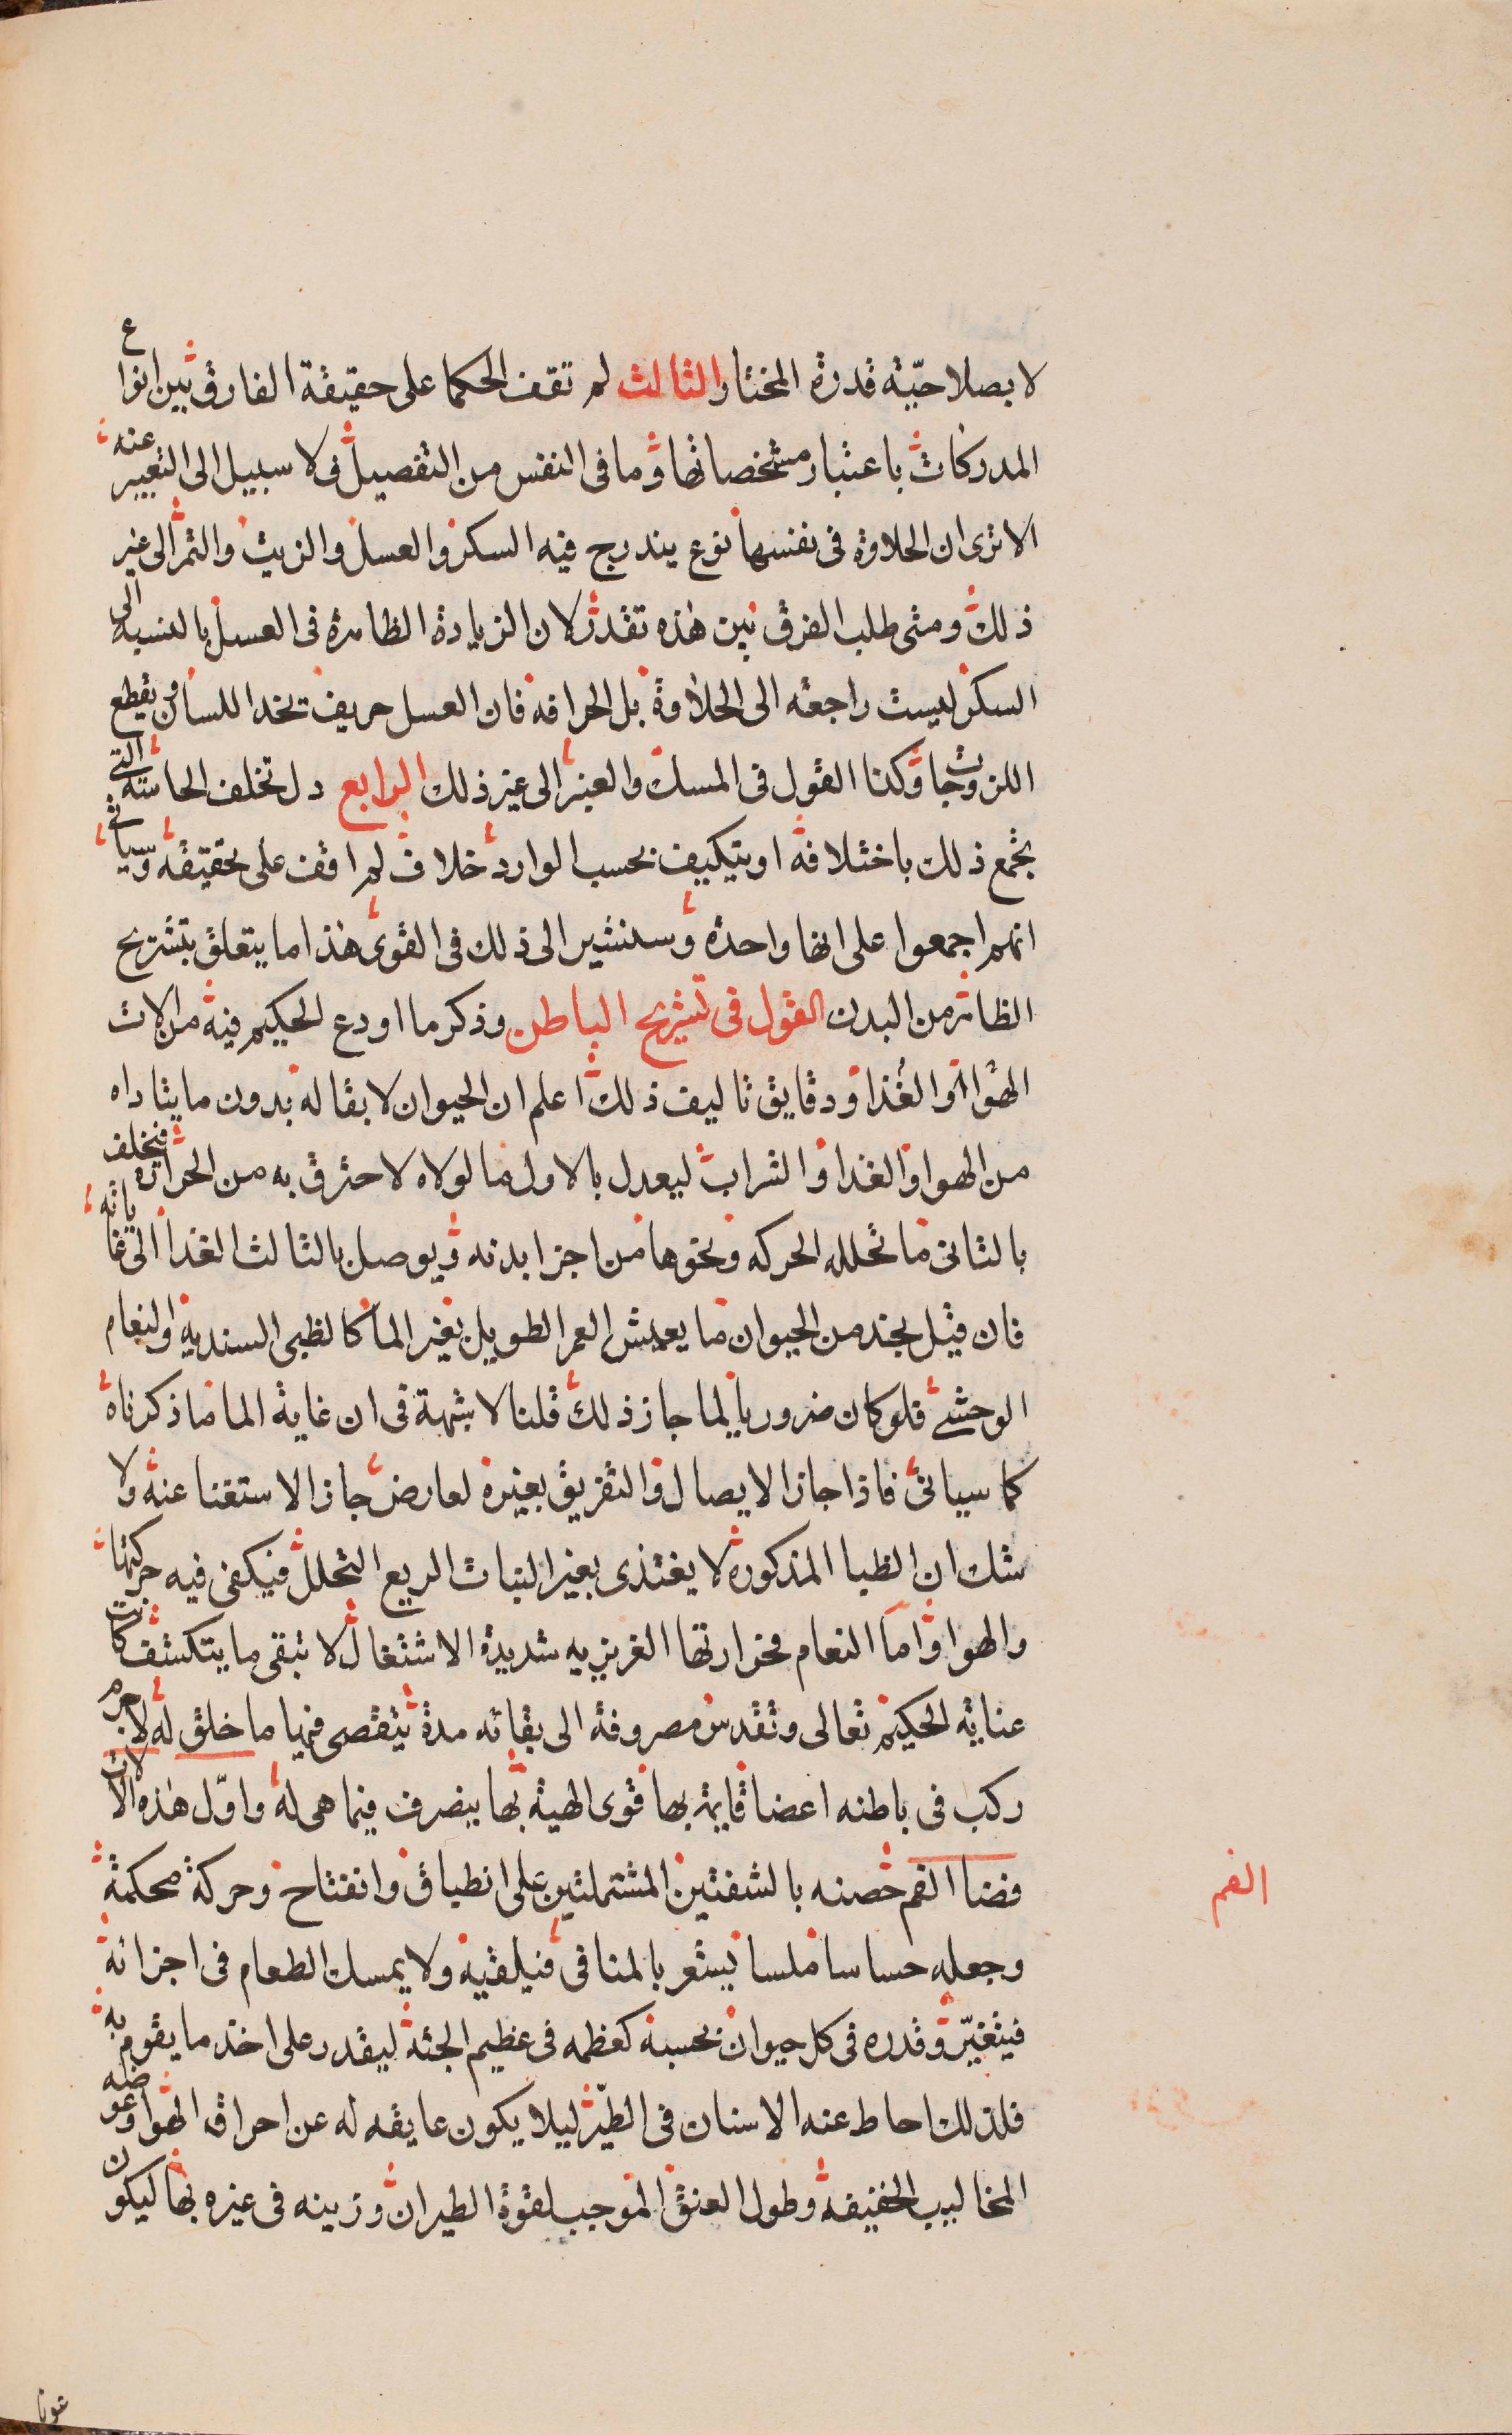 لا بصلاحيّة قدرة المختار والثالث لم تقف الحكما على حقيقة الفارق بين انواع
المدركات باعتبار مشخصاتها وما فى النفس من التفصيل فى لا سبيل الى التعبير عنه
الا ترى ان الحلاوة فى نفسها نوع يندرج فيه السكر والعسل والزيت والتمر الى غير
ذلك ومتى طلب الفرق بين هذه تقدر لان الزيادة الظاهرة فى العسل بالنسبه الى
السكر ليست راجعه الى الحلاوة بل الحرافة فان العسل حريف يحد اللسان ويقطع
اللزوجات وكذا القول فى المسك والعنبر الى غير ذلك الرابع دل تخلف الحاسة التى
بجمع ذلك باختلافه او يتكيف بحسب الوارد خلاف لم اقف على تحقيقه وسياتى
انهم اجمعوا على انها واحدة وسنشير الى ذلك فى القوى هذا ما يتعلق بتشريح
الظاهر من البدن القول فى تشريح الباطن وذكر ما اودع الحكيم فيه من الات
الهوا والغذا ودقايق تاليف ذلك اعلم ان الحيوان لا بقا له بدون ما يتاداه
من الهوا والغذا والشراب ليعدل بالاول ما لولاه لاحترق به من الحرارة فيخلف
بالثانى ما تحلله الحركه ونحوها من اجزا بدنه ويوصل بالثالث الغذا الى غاياته
فان قيل نجد من الحيوان ما يعيش العمر الطويل بغير الما كالظبى السندية والنعام
الوحشى فلو كان ضروريا لما جاز ذلك قلنا لا شبهة فى ان غاية الما ما ذكرناه
كما سياتى فاذا جاز الايصال والتفريق بغيره لعارض جاز الاستغنا عنه ولا
شك ان الظبا المذكورة لا يغتذى بغير النبات الريع التحلل فيكفى فيه حركتها
والهوا واما النعام فحرارتها الغريزيه شديدة الاشتغال لا تبقى ما يتكشف كانت
عناية الحكيم تعالى وتقدس مصروفة الى بقائه مدة يتقصى فيها ما خلق له لا جرم
ركب فى باطنه اعضا قايمة بها قوى الهية بها يتصرف فيما هى له واوّل هذه الالات
فضا الفم حصنه بالشفتين المشتملتين على انطباق وانفتاح وحركة محكمة
وجعله حساسا ملسا يشعر بالمنافى فيلقيه ولا يمسك الطعام فى اجزائه
فيتغيّر وقدره فى كل حيوان بحسبه كعظمه فى عظيم الجثة ليقدر على اخذ ما يقوم به
فلذلك احاط عنه الاسنان فى الطيّر ليلا يكون عايقه له عن احراق الهوا وعوضه
المخاليب الخفيفة وطول العنق الموجب لقوة الطيران وزينه فى غيره بها ليكون
الفم
عونا